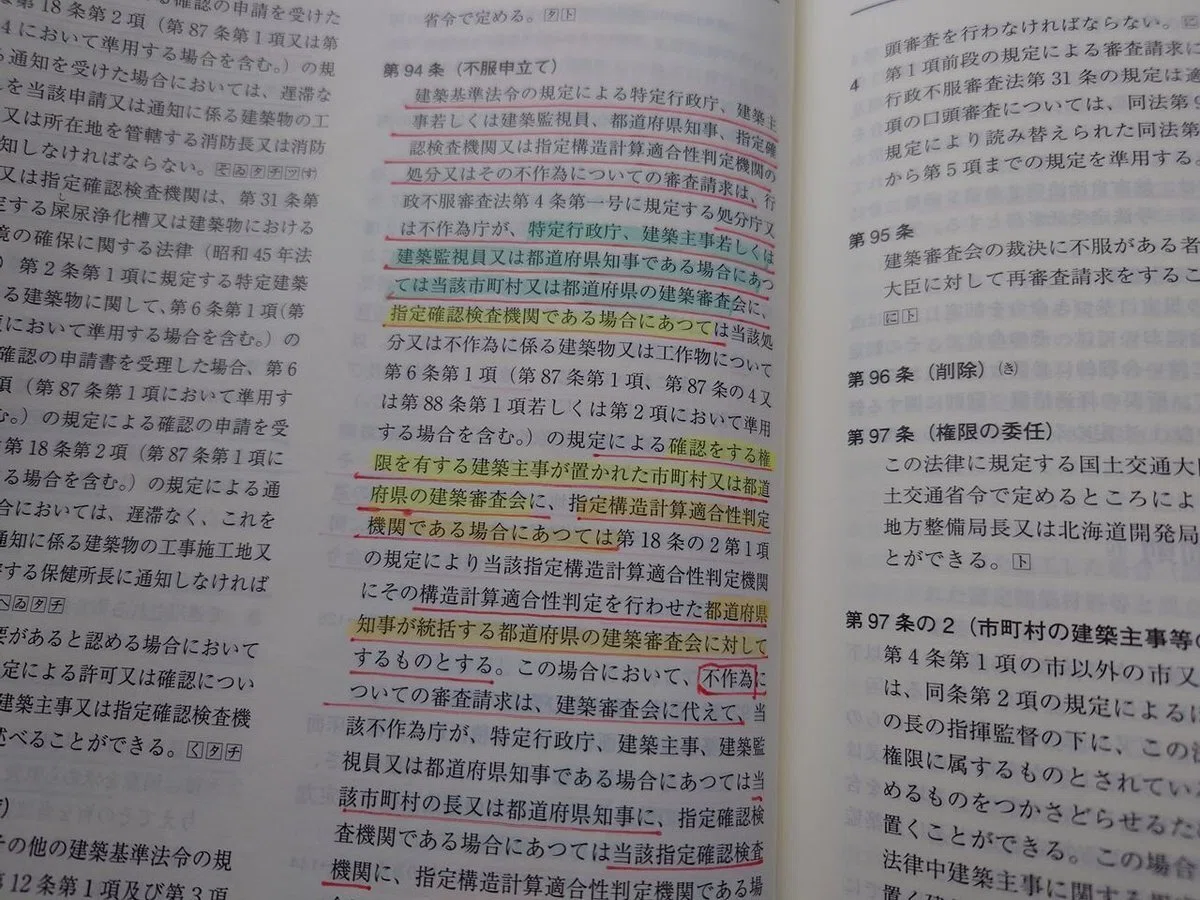 る確認の申請を受けた
第18条第2項（第87条第1項又は第
4において準用する場合を含む。）の規
通知を受けた場合においては、遅滞な
を当該申請又は通知に係る建築物の工
又は所在地を管轄する消防長又は消防
知しなければならない。
又は指定確認検査機関は、第31条第
定する屎尿浄化槽又は建築物における
境の確保に関する法律（昭和45年法
）第2条第1項に規定する特定建築
る建築物に関して、第6条第1項（第
において準用する場合を含む。）の
確認の申請書を受理した場合、第6
項（第87条第1項において準用す
む。）の規定による確認の申請を受
第18条第2項（第87条第1項に
する場合を含む。）の規定による通
合においては、遅滞なく、これを
通知に係る建築物の工事施工地又
する保健所長に通知しなければ
要があると認める場合において
定による許可又は確認につい
建築主事又は指定確認検査機
述べることができる。
その他の建築基準法令の規
第12条第1項及び第3項
省令で定める。
第94条（不服申立て）
建築基準法令の規定による特定行政庁、建築主
事若しくは建築監視員、都道府県知事、指定確
認検査機関又は指定構造計算適合性判定機関の
処分又はその不作為についての審査請求は、行
政不服審査法第4条第一号に規定する処分庁又
は不作為庁が、特定行政庁、建築主事若しくは
建築監視員又は都道府県知事である場合にあつ
ては当該市町村又は都道府県の建築審査会に、
指定確認検査機関である場合にあつては当該処
分又は不作為に係る建築物又は工作物について
第6条第1項（第87条第1項、第87条の4又
は第88条第1項若しくは第2項において準用
する場合を含む。）の規定による確認をする権
限を有する建築主事が置かれた市町村又は都道
府県の建築審査会に、指定構造計算適合性判定
機関である場合にあつては第18条の2第1項
の規定により当該指定構造計算適合性判定機関
にその構造計算適合性判定を行わせた都道府県
知事が統括する都道府県の建築審査会に対して
するものとする。この場合において、不作為に
ついての審査請求は、建築審査会に代えて、当
該不作為庁が、特定行政庁、建築主事、建築監
視員又は都道府県知事である場合にあつては当
該市町村の長又は都道府県知事に、指定確認検
査機関である場合にあつては当該指定確認検査
機関に、指定構造計算適合性判定機関である場
頭審査を行わなければならない。
4 第1項前段の規定による審査請求に
行政不服審査法第31条の規定は適
項の口頭審査については、同法第9
規定により読み替えられた同法第
から第5項までの規定を準用する。
第95条
建築審査会の裁決に不服がある者
大臣に対して再審査請求をするこ
第96条（削除）（き）
第97条（権限の委任）
この法律に規定する国土交通大臣
土交通省令で定めるところによ
地方整備局長又は北海道開発局
とができる。
第97条の2（市町村の建築主事等の
第4条第1項の市以外の市又
は、同条第2項の規定によるほ
の長の指揮監督の下に、この法
権限に属するものとされてい
めるものをつかさどらせるた
置くことができる。この場合
法律中建築主事に関する規